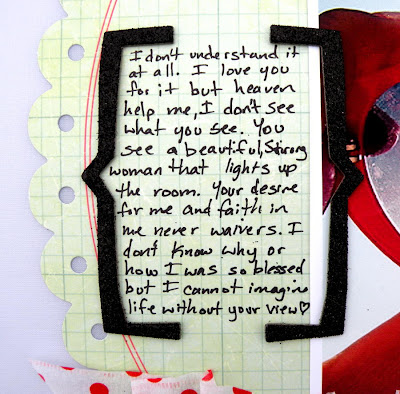 I don't understand it
at all. I love you
for it but heaven
help me, I don't see
what you see. You
see a beautiful, strong
woman that lights up
the room. Your desire
for me and faith in
me never waivers. I
don't know why or
how I was so blessed
but I cannot imagine
life without your view♡